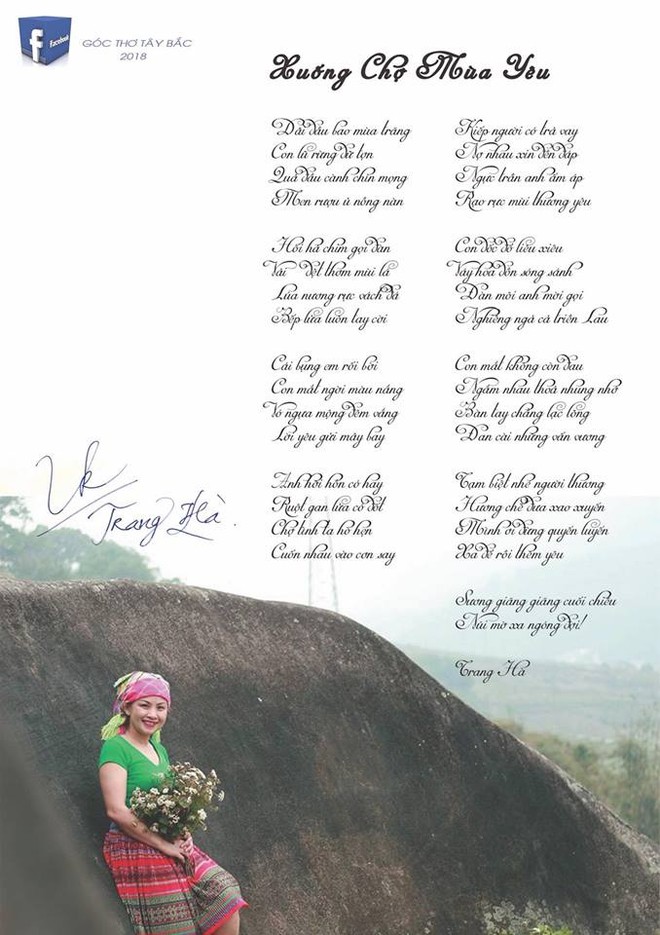 facebook
GÓC THƠ TÂY BẮC
2018
Xuống Chợ Mùa Yêu
Dãi dầu bao mùa trăng
Con lũ rừng dữ lợn
Quả đầu cành chín mọng
Men rượu ủ nồng nàn
Hối hả chim gọi đàn
Vải dệt thơm mùi lá
Lúa nương rực vách đá
Bếp lửa luôn tay cời
Cái bụng em rối bời
Con mắt ngời màu nắng
Vó ngựa mộng đêm vắng
Lời yêu gửi mây bay
Anh hỡi hỡn có hay
Ruột gan lửa cỏ đốt
Chợ tình ta hò hẹn
Cuốn nhau vào cơn say
Kiếp người có trả vay
Nợ nhau xin đền đáp
Ngực trần anh ấm áp
Rạo rực mùi thương yêu
Con dốc đổ liêu xiêu
Váy hoa dồn sóng sánh
Đàn môi anh mời gọi
Nghiêng ngả cả triền Lau
Con mắt không còn đau
Ngắm nhau thoả nhung nhớ
Bàn tay chẳng lạc lõng
Đan cài những vấn vương
Tạm biệt nhé người thương
Hương chè đưa xao xuyến
Mình ơi đừng quyến luyến
Xa để rồi thêm yêu
Sương giăng giăng cuối chiều
Núi mờ xa ngóng đợi!
Trang Hà
Vk/
Trang Hà.